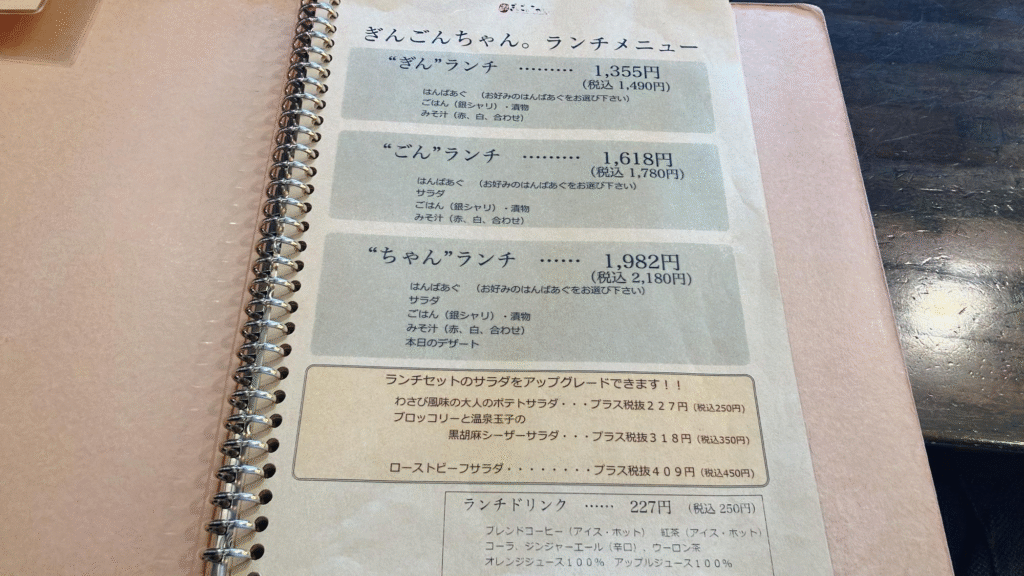 ぎんごんちゃん。ランチメニュー
“ぎん”ランチ ……… 1,355円
(税込 1,490円)
はんばあぐ （お好みのはんばあぐをお選び下さい）
ごはん（銀シャリ）・漬物
みそ汁（赤、白、合わせ）
“ごん”ランチ ……… 1,618円
(税込 1,780円)
はんばあぐ （お好みのはんばあぐをお選び下さい）
サラダ
ごはん（銀シャリ）・漬物
みそ汁（赤、白、合わせ）
“ちゃん”ランチ …… 1,982円
(税込 2,180円)
はんばあぐ （お好みのはんばあぐをお選び下さい）
サラダ
ごはん（銀シャリ）・漬物
みそ汁（赤、白、合わせ）
本日のデザート
ランチセットのサラダをアップグレードできます！！
わさび風味の大人のポテトサラダ・・・プラス税抜２２７円（税込250円）
ブロッコリーと温泉玉子の
黒胡麻シーザーサラダ・・・プラス税抜３１８円（税込350円）
ローストビーフサラダ・・・・・・・・プラス税抜４０９円（税込450円）
ランチドリンク …… 227円 （税込 250円）
ブレンドコーヒー（アイス・ホット） 紅茶（アイス・ホット）
コーラ、ジンジャーエール（辛口）、ウーロン茶
オレンジジュース１００％ アップルジュース１００％